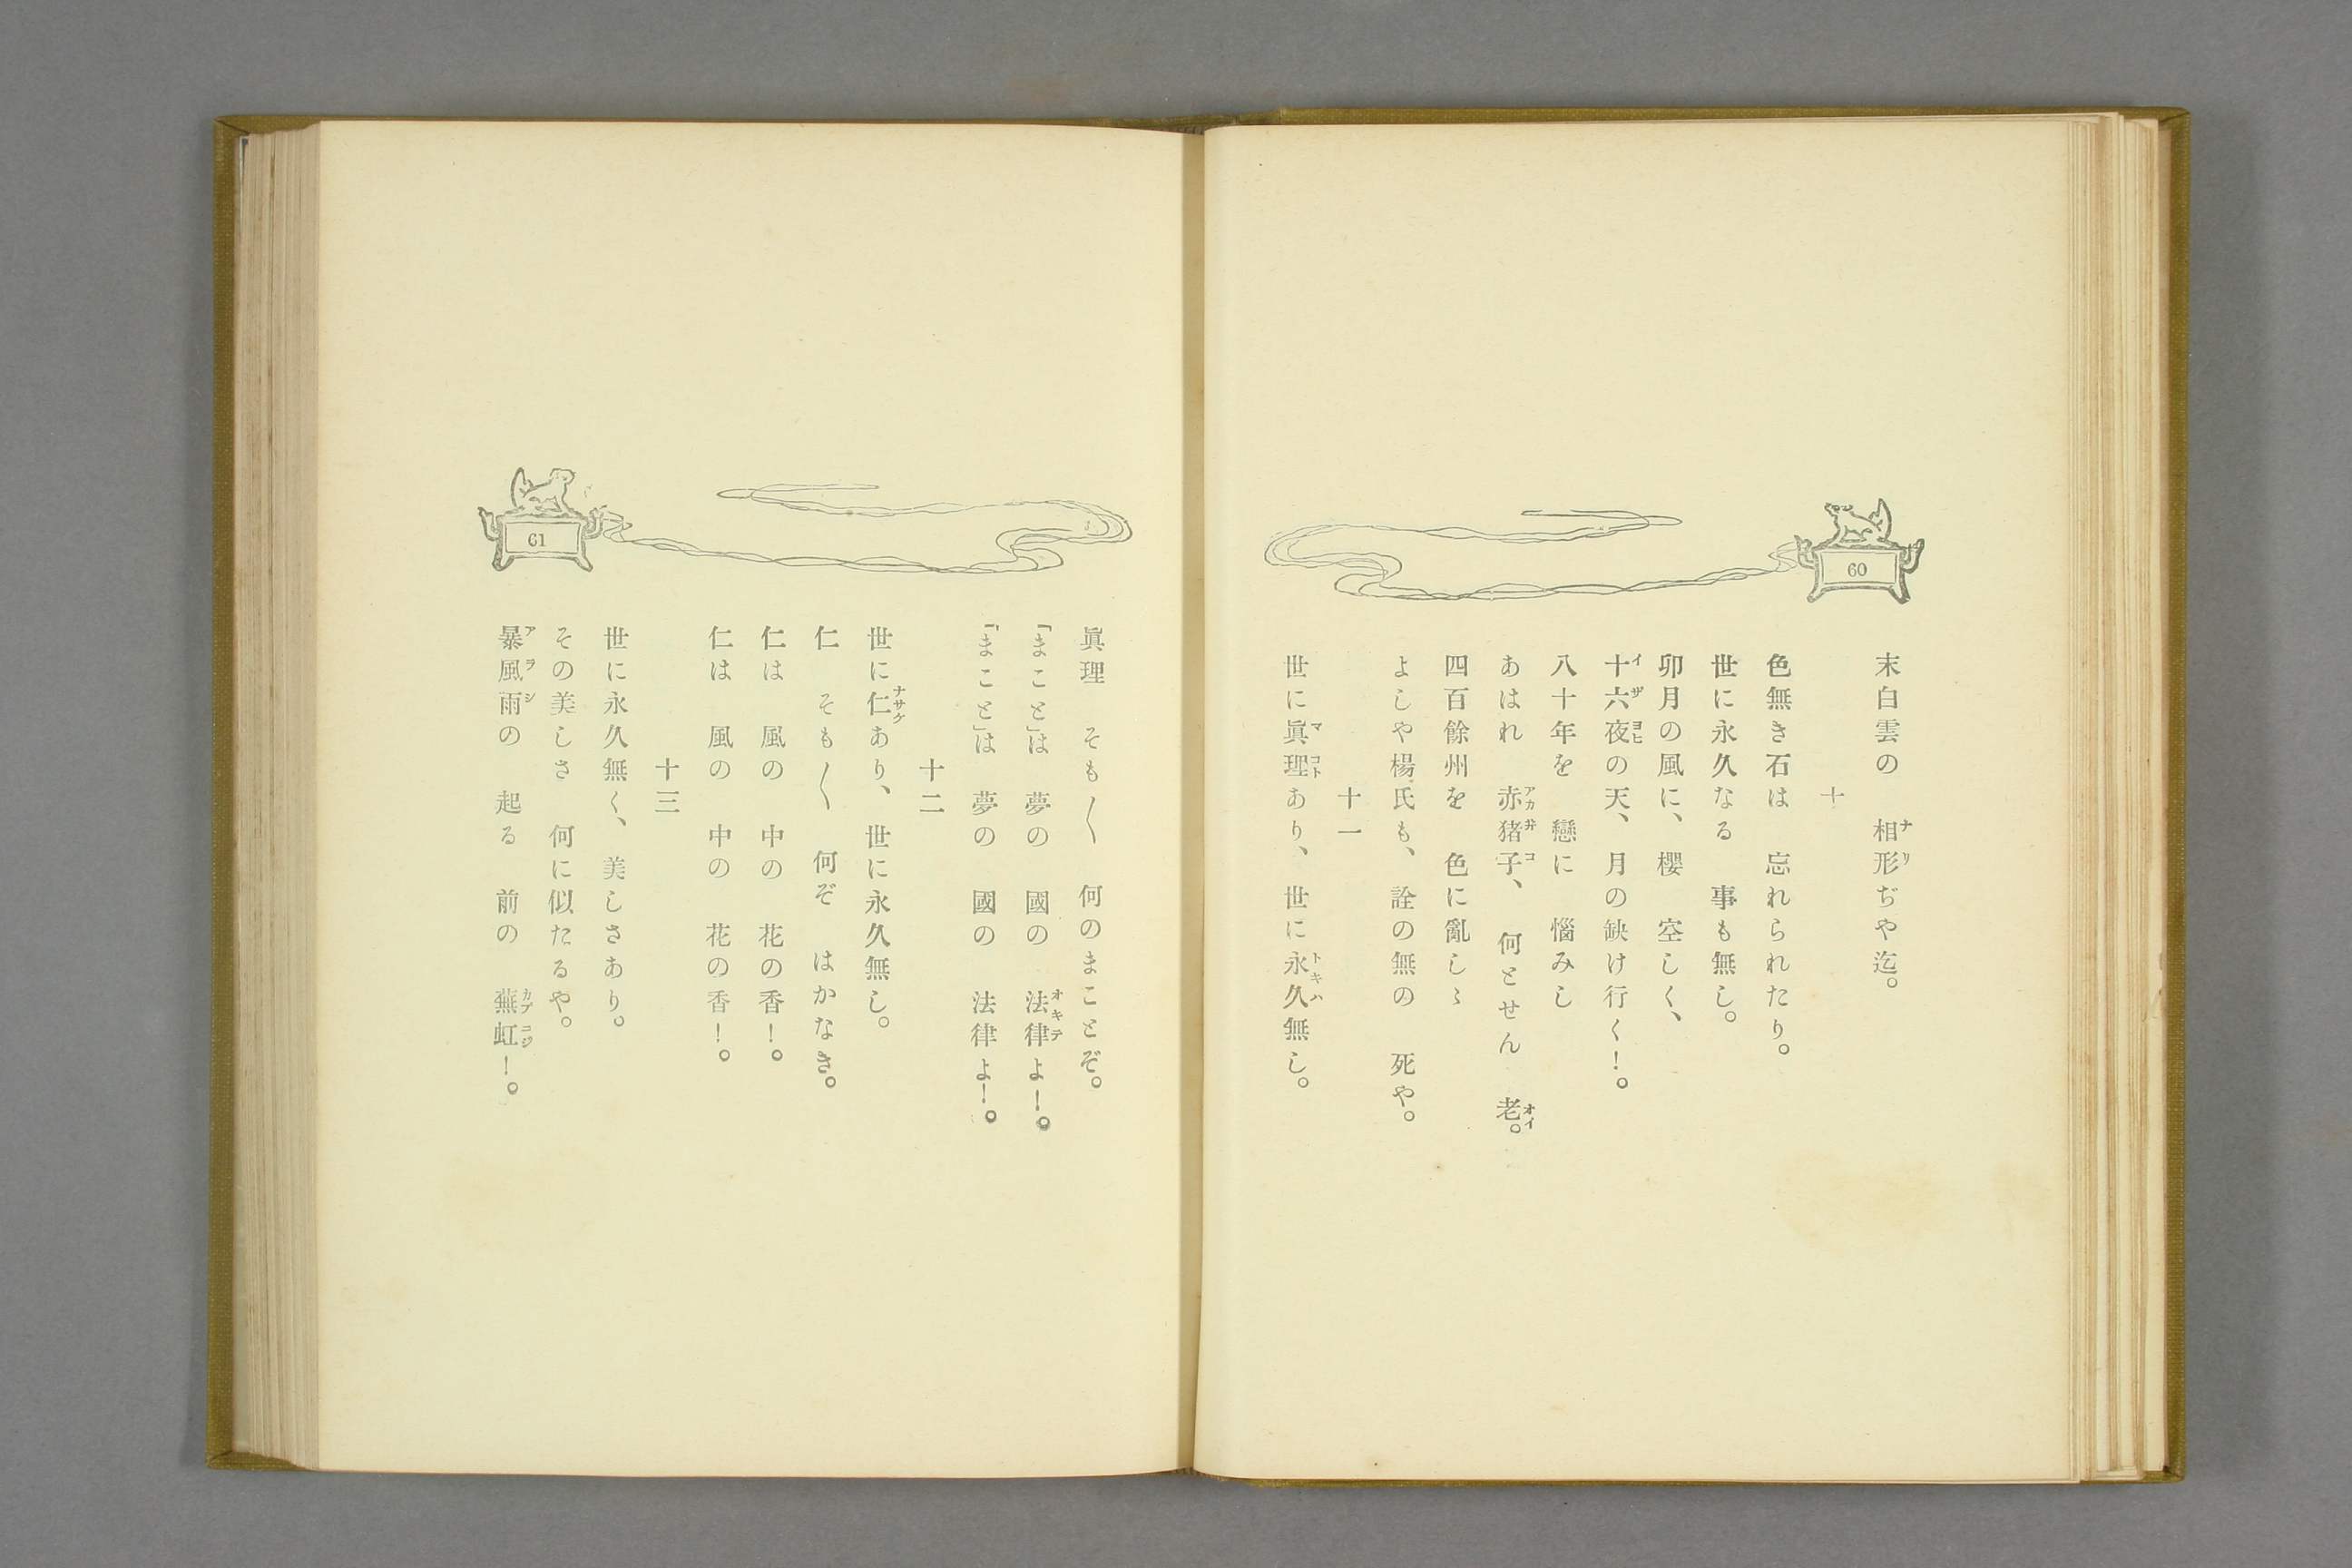 60
末白雲の　相形ぢや迄。
十
色無き石は　忘れられたり。
世に永久なる　事も無し。
卯月の風に、櫻　空しく、
十六夜の天、月の缺け行く！。
八十年を　戀に　惱みし
あはれ　赤猪子、何とせん　老。
四百餘州を　色に亂しゝ
よしや楊氏も、詮の無の　死や。
十一
世に眞理あり、世に永久無し。
61
眞理　そも〱　何のまことぞ。
「まこと」は　夢の　國の　法律よ！。
「まこと」は　夢の　國の　法律よ！。
十二
世に仁あり、世に永久無し。
仁　そも〱　何ぞ　はかなき。
仁は　風の　中の　花の香！。
仁は　風の　中の　花の香！。
十三
世に永久無く、美しさあり。
その美しさ　何に似たるや。
暴風雨の　起る　前の　蕪虹！。